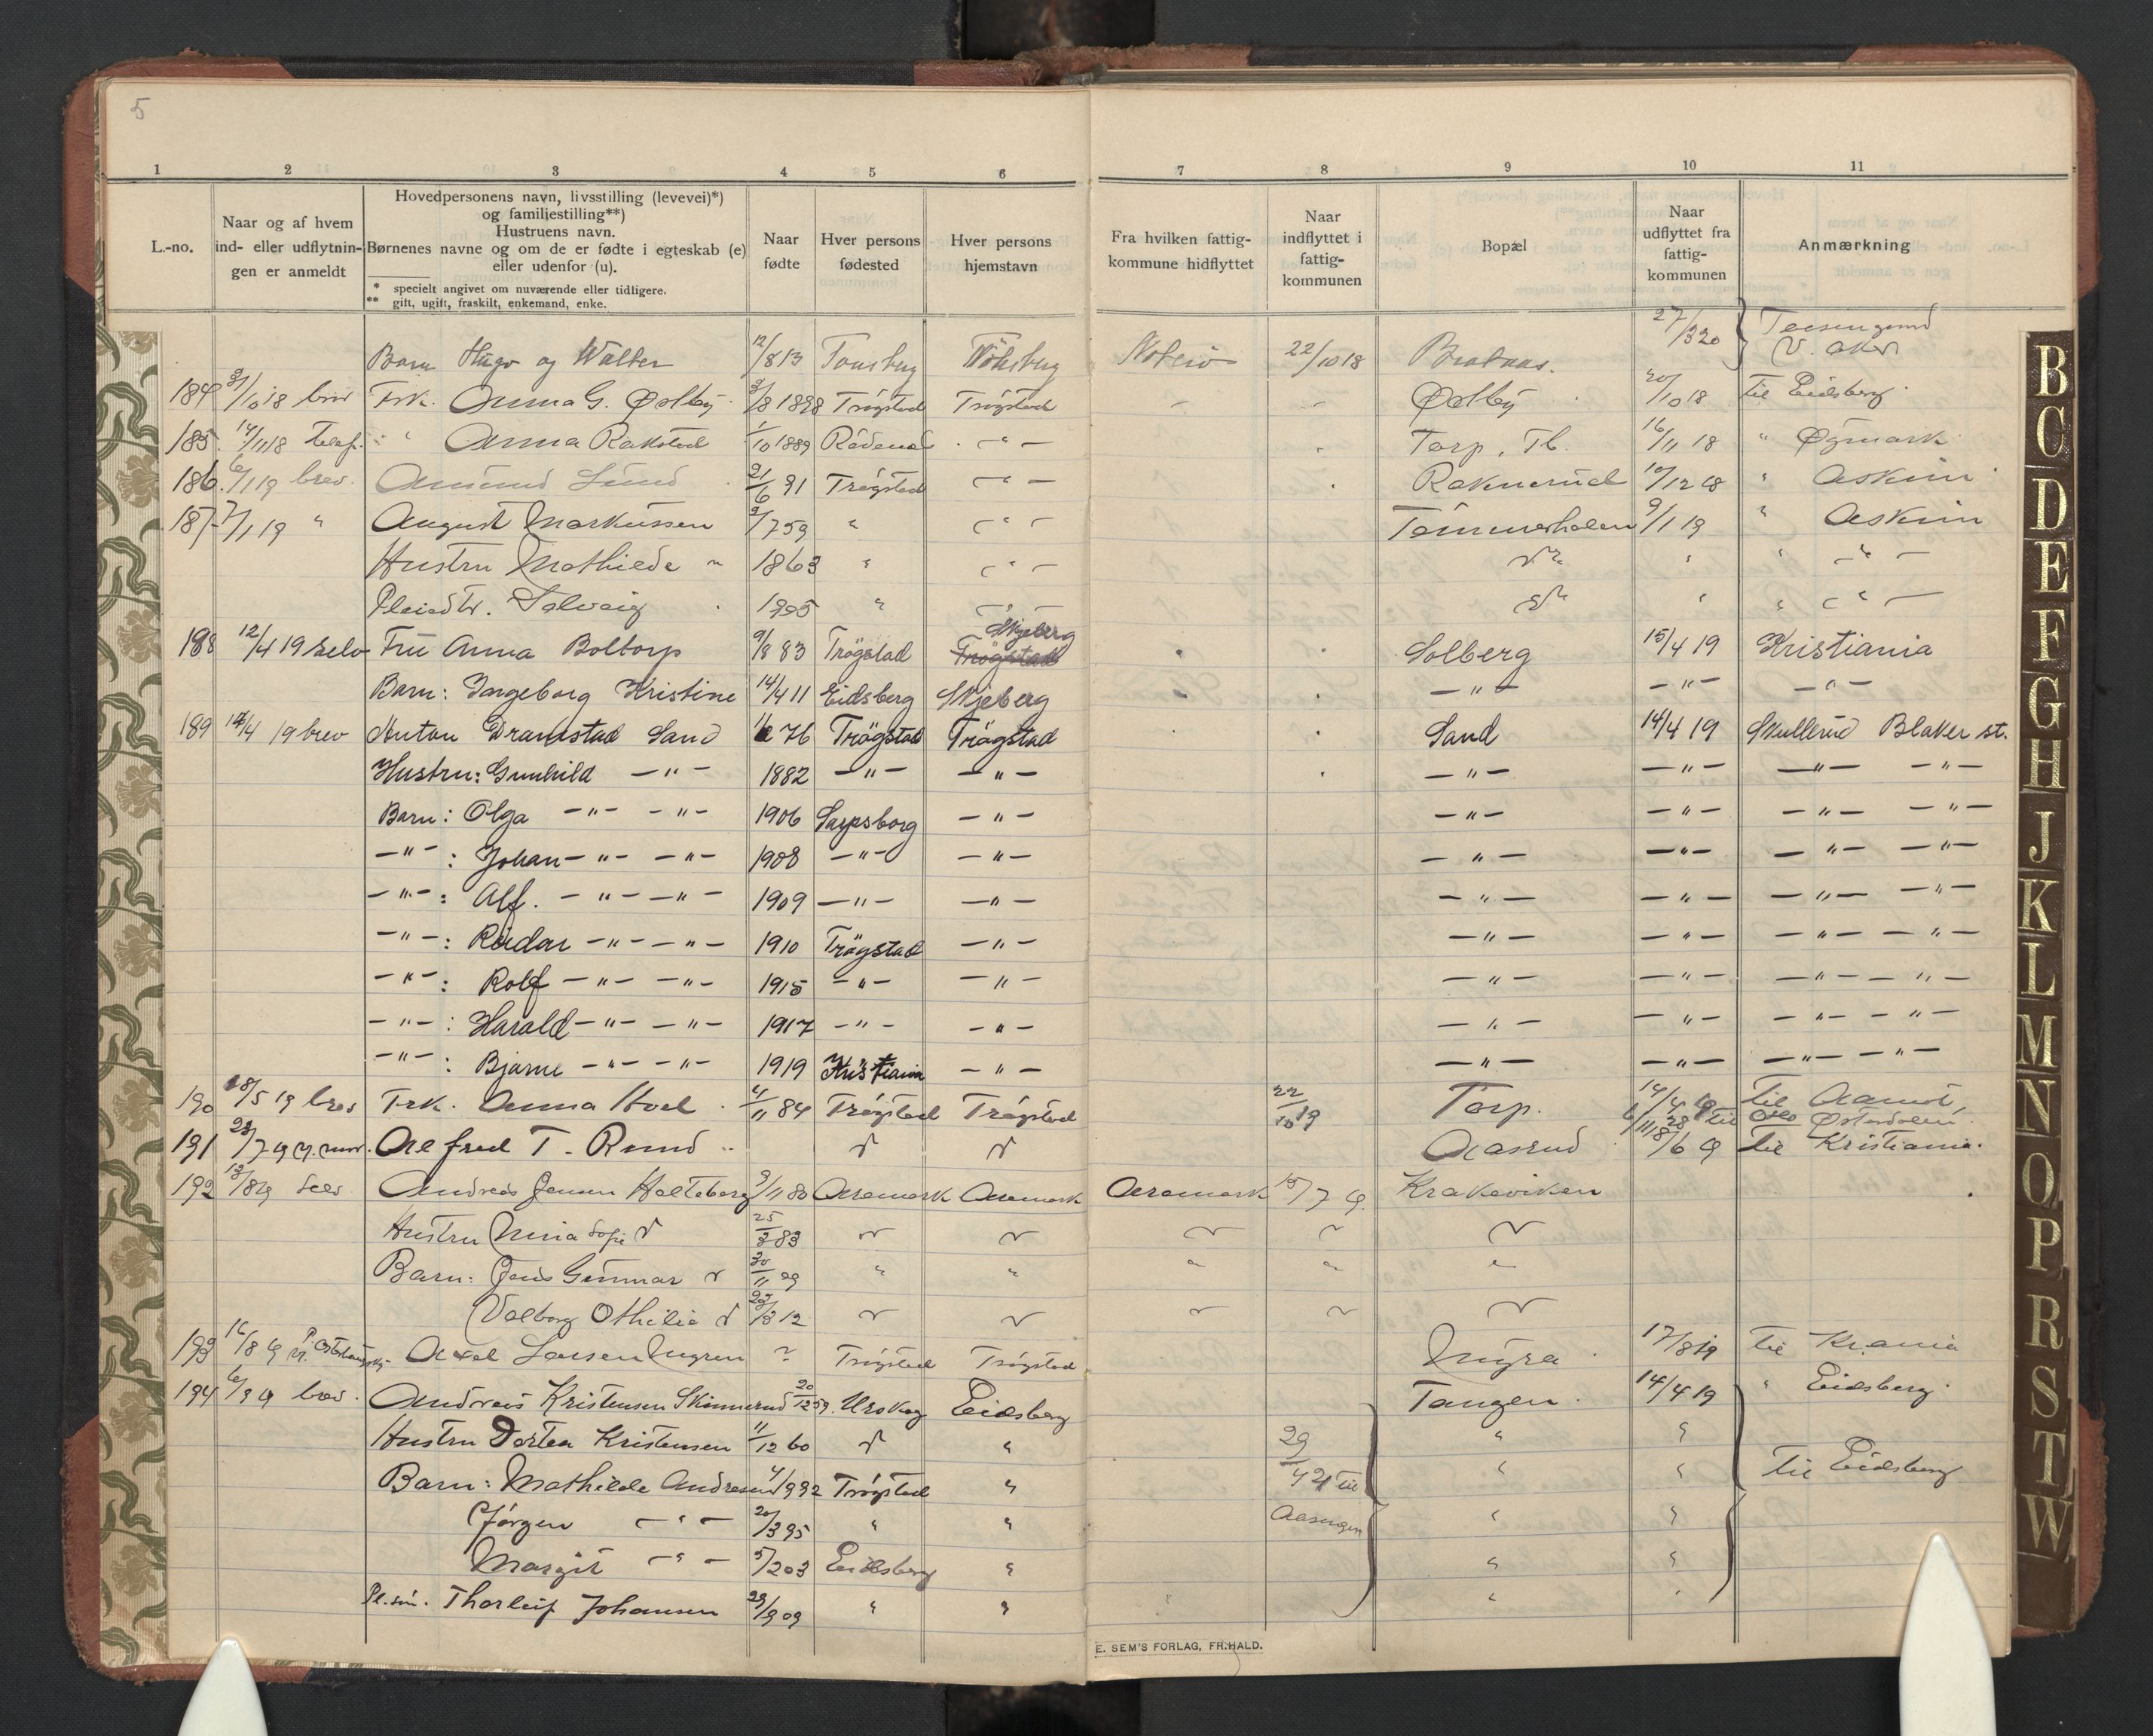 5
1 2 3 4 5 6 7 8 9 10 11
L.-no.
Naar og af hvem ind- eller udflytnin- gen er anmeldt
Hovedpersonens navn, livsstilling (levevei)*)
og familjestilling**)
Hustruens navn.
Børnenes navne og om de er fødte i egteskab (e)
eller udenfor (u).
* specielt angivet om nuværende eller tidligere.
** gift, ugift, fraskilt, enkemand, enke.
Naar fødte
Hver persons fødested
Hver persons hjemstavn
Fra hvilken fattig- kommune hidflyttet
Naar indflyttet i fattig- kommunen
Bopæl
Naar udflyttet fra fattig- kommunen
Anmærkning
Barn Hugo og Walter 12/8 13 Tønsberg Nøterø 22/10 18 27/3 20 V. Aker
184 31/10 18 brev Frk. Anna G. Østby 3/8 1898 Trøgstad Trøgstad Østby 20/10 18 til Eidsberg
185 14/11 18 Telef. " Anna Rakstad 1/10 1889 Rødenæs — " — Torp, Tb. 16/11 18 " Øymark
186 6/1 19 brev. Amund Lund 21/6 91 Trøgstad — " — Raknerud 10/12 18 " Askim
187 7/1 19 " August Markussen 9/7 59 " — " — Tömmerholen 9/1 19 " Askim
Hustru Mathilde " 1863 " — " — " " — " —
Pleiedtr. Solveig 1905 " — " — " " — " —
188 12/4 19 selv Fru Anna Boltorp 9/8 83 Trögstad Skjeberg Trögstad Solberg 15/4 19 Kristiania
Barn: Ingeborg Kristine 14/4 11 Eidsberg Skjeberg — " — — " — — " —
189 14/4 19 brev Anton Dramstad Sand 76 Trögstad Trögstad Sand 14/4 19 Skullerud Blaker st.
Hustru: Gunhild — " — 1882 — " — — " — — " — — " — — " — — " —
Barn: Olga — " — — " — 1906 Sarpsborg — " — — " — — " — — " — — " —
— " — : Johan — " — — " — 1908 — " — — " — — " — — " — — " — — " —
— " — : Alf. — " — — " — 1909 — " — — " — — " — — " — — " — — " —
— " — : Reidar — " — — " — 1910 Trögstad — " — — " — — " — — " — — " —
— " — : Rolf — " — — " — 1915 — " — — " — — " — — " — — " — — " —
— " — : Harald — " — — " — 1917 — " — — " — — " — — " — — " — — " —
— " — : Bjarne — " — — " — 1919 Kristiania — " — — " — — " — — " — — " —
190 18/5 19 brev Frk. Anna Hoel 4/11 84 Trøgstad Trøgstad 22/10 19 Torp. 14/4 19 til Aamot, Østerdalen
6/11 28 til Oslo
191 Alfred T. Rund Aasrud til Kristiania.
192 13/8 19 Selv Andreas Jensen Holteberg 9/11 80 Aremark Aremark Aremark 15/7 19. Krakeviken
Hustru Mina Sofie 25/3 83
Barn: Jens Gunnar 30/11 09 " " " " "
Valborg Othilie 23/3 12
193 16/8 19 Axel Larsen Myren Trøgstad Trøgstad Myra 17/8 19 til Kr.ania
194 6/9 19 brev. Andreas Kristensen Skinnerud 20/12 59. Urskog Eidsberg Tangen 14/4 19 " Eidsberg
Hustru Dortea Kristensen 11/12 60 " " "
Barn: Mathilde Andresen 4/9 92 Trøgstad " 29/4 21 til " " til Eidsberg
Jørgen — " — 20/3 95 " " Aasengen " "
Margit — " — 5/2 03 Eidsberg " " "
Pl.søn. Thorleif Johansen 29/9 09 " " " "
E. SEM'S FORLAG, FR.HALD.
B
C
D
E
F
G
H
J
K
L
M
N
O
P
R
S
T
W